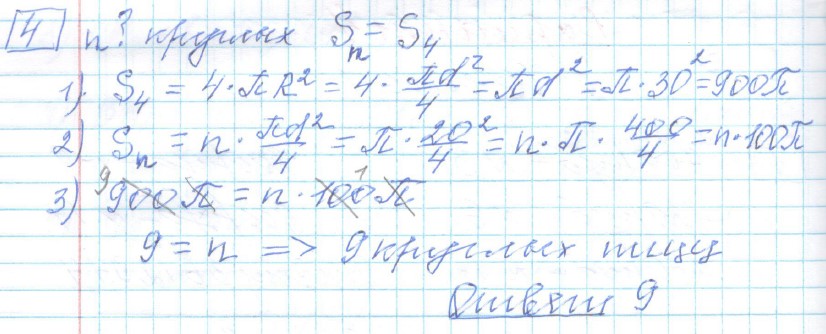 4 n? круглых Sₙ = S₄
1) S₄ = 4·πR² = 4·πd²/4 = πd² = π·30² = 900π
2) Sₙ = n·πd²/4 = π·20²/4 = n·π·400/4 = n·100π
3) 9 900π = n·100π 1
9 = n => 9 круглых пицц
Ответ 9